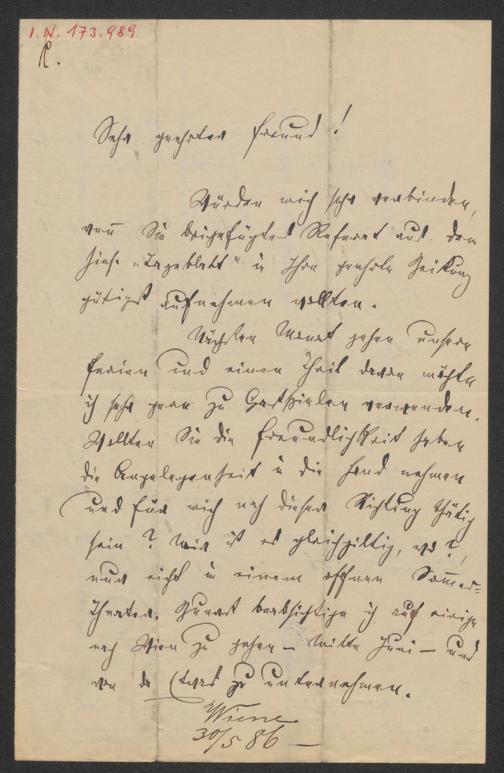 I.N. 173.989
R.
Sehr geehrter Freund!
Würden mich sehr verbinden,
wenn Sie beigefügtes Referat aus dem
hies. "Tageblatt" in Ihre geehrte Zeitung
gütigst aufnehmen wollten.
Nächsten Monat gehen unsere
Ferien und einen Theil davon möchte
ich sehr gern zu Gastspielen verwenden.
Wollten Sie die Freundlichkeit haben
die Angelegenheit in die Hand nehmen
und für mich nach dieser Richtung thätig
sein? Mir ist es gleichgiltig, wo?,
nur nicht in einem offnen Sommer=
Theater. Zuerst beabsichtige ich auf einige
nach Wien zu gehen – Mitte Juni – und
von da Etwas zu unternehmen.
30/5 86 –